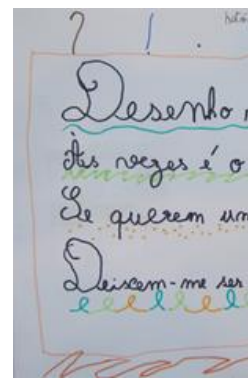 ? ! .
Desenho
Às vezes é o
Se querem um
Deixem-me ser